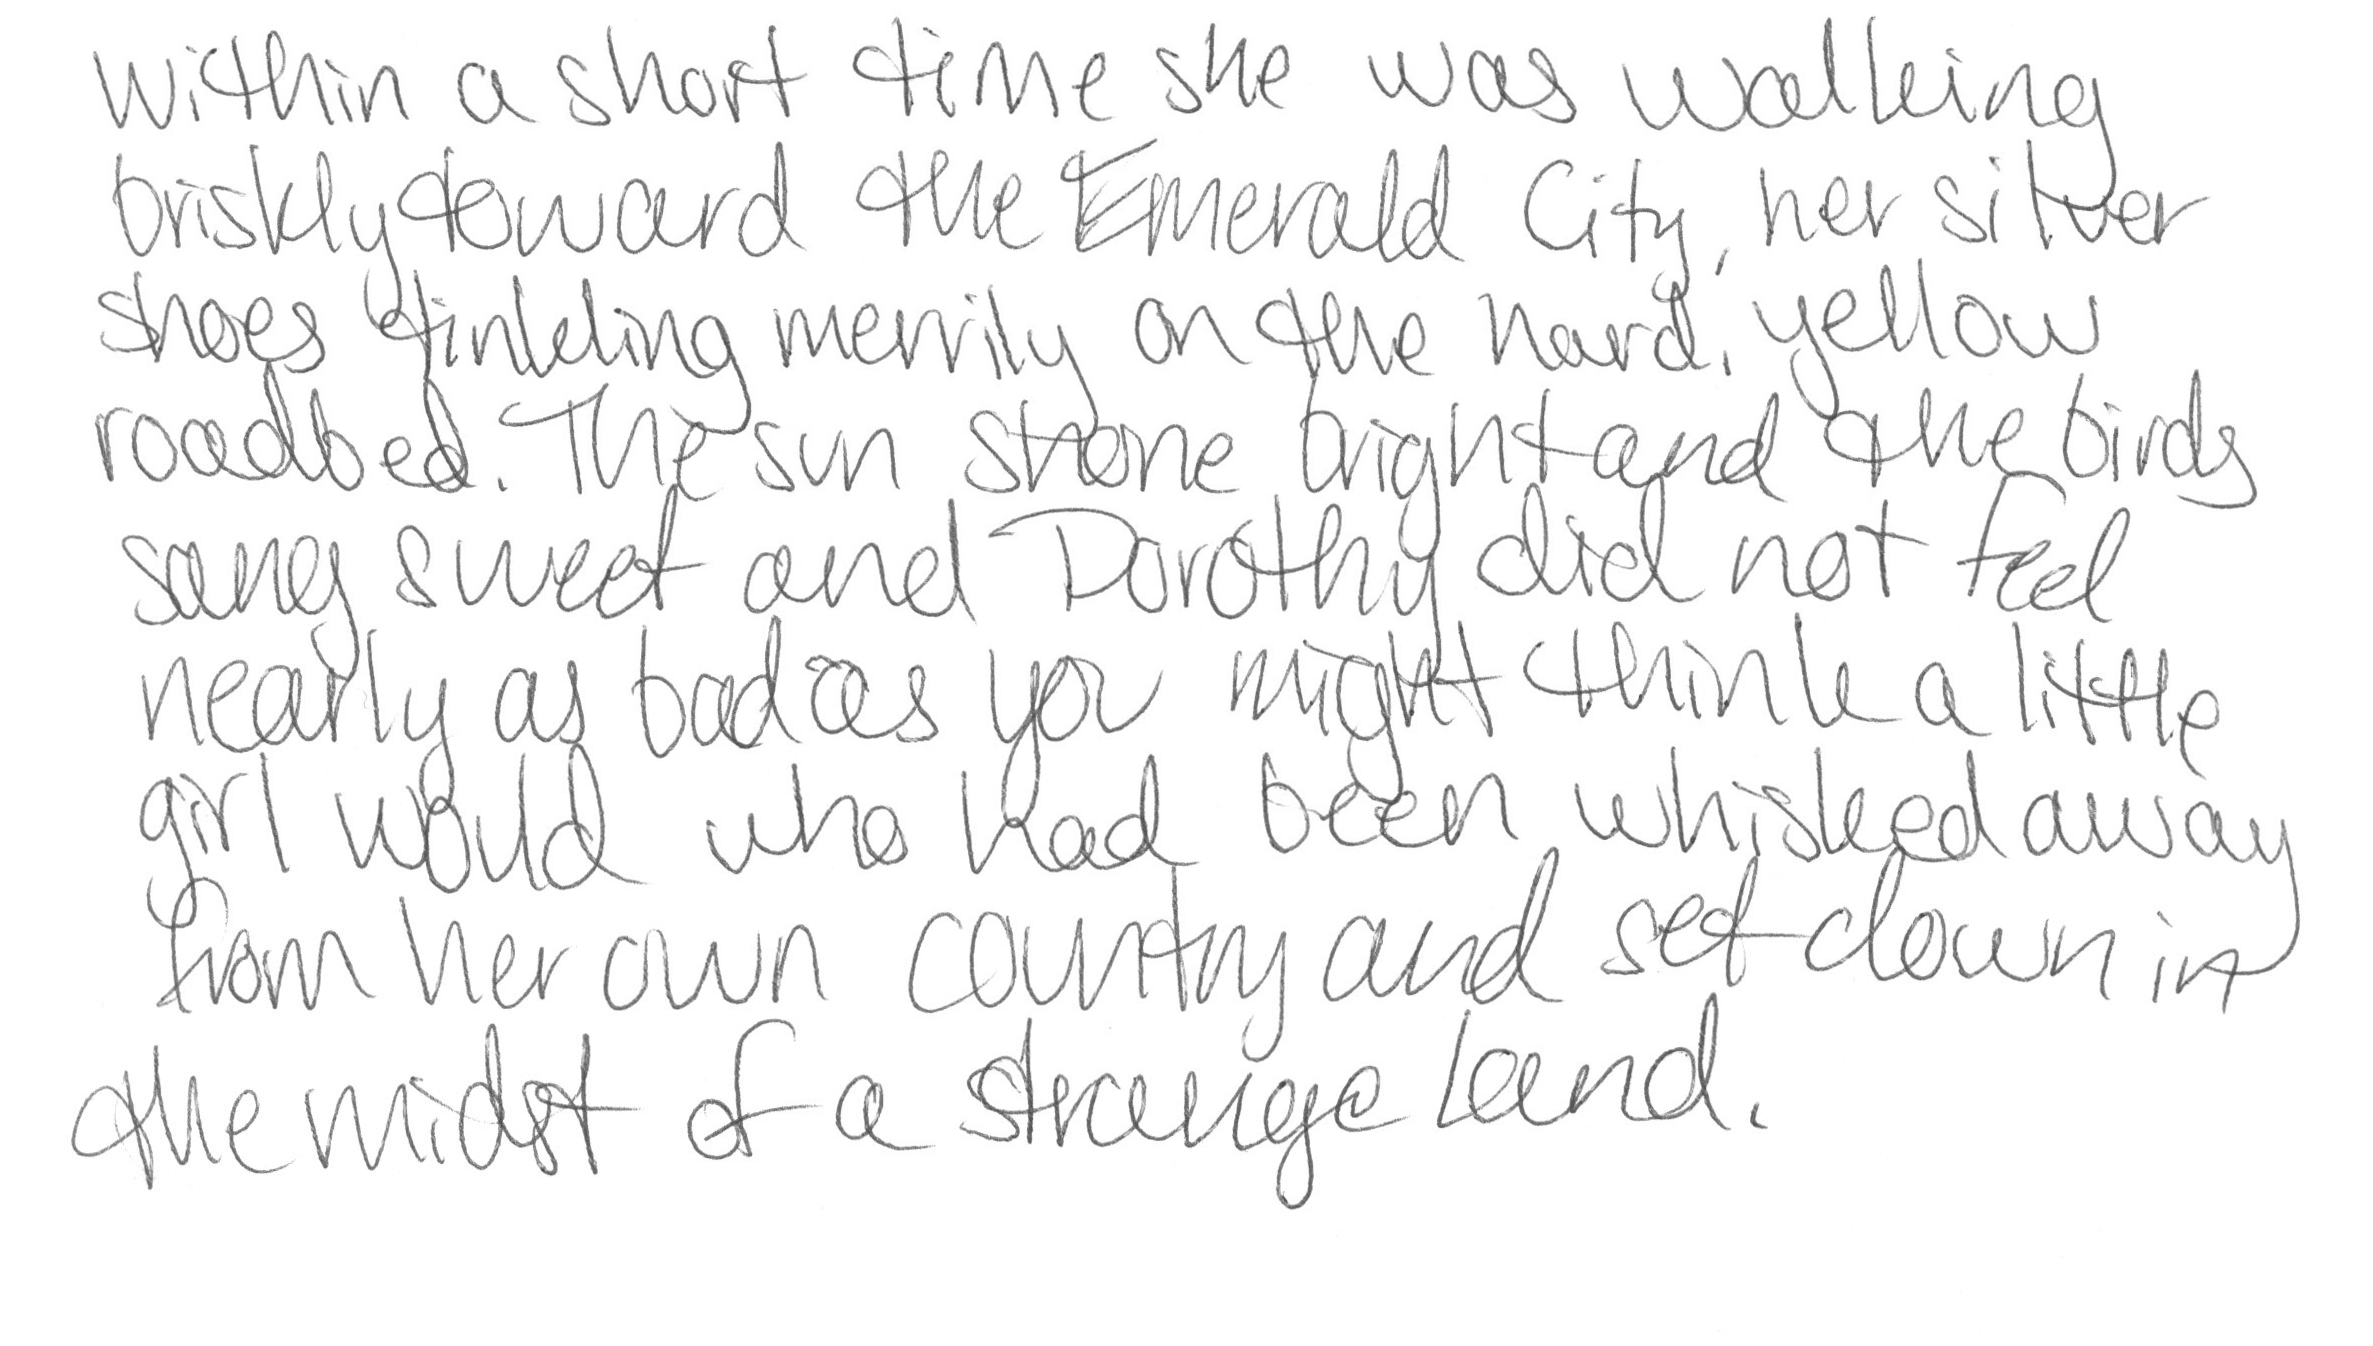 Within a short time she was walking
briskly toward the Emerald City, her silver
shoes tinkling merrily on the hard, yellow
roadbed. The sun shone bright and the birds
sang sweet and Dorothy did not feel
nearly as bad as you might think a little
girl would who had been whisked away
from her own country and set down in
the midst of a strange land.